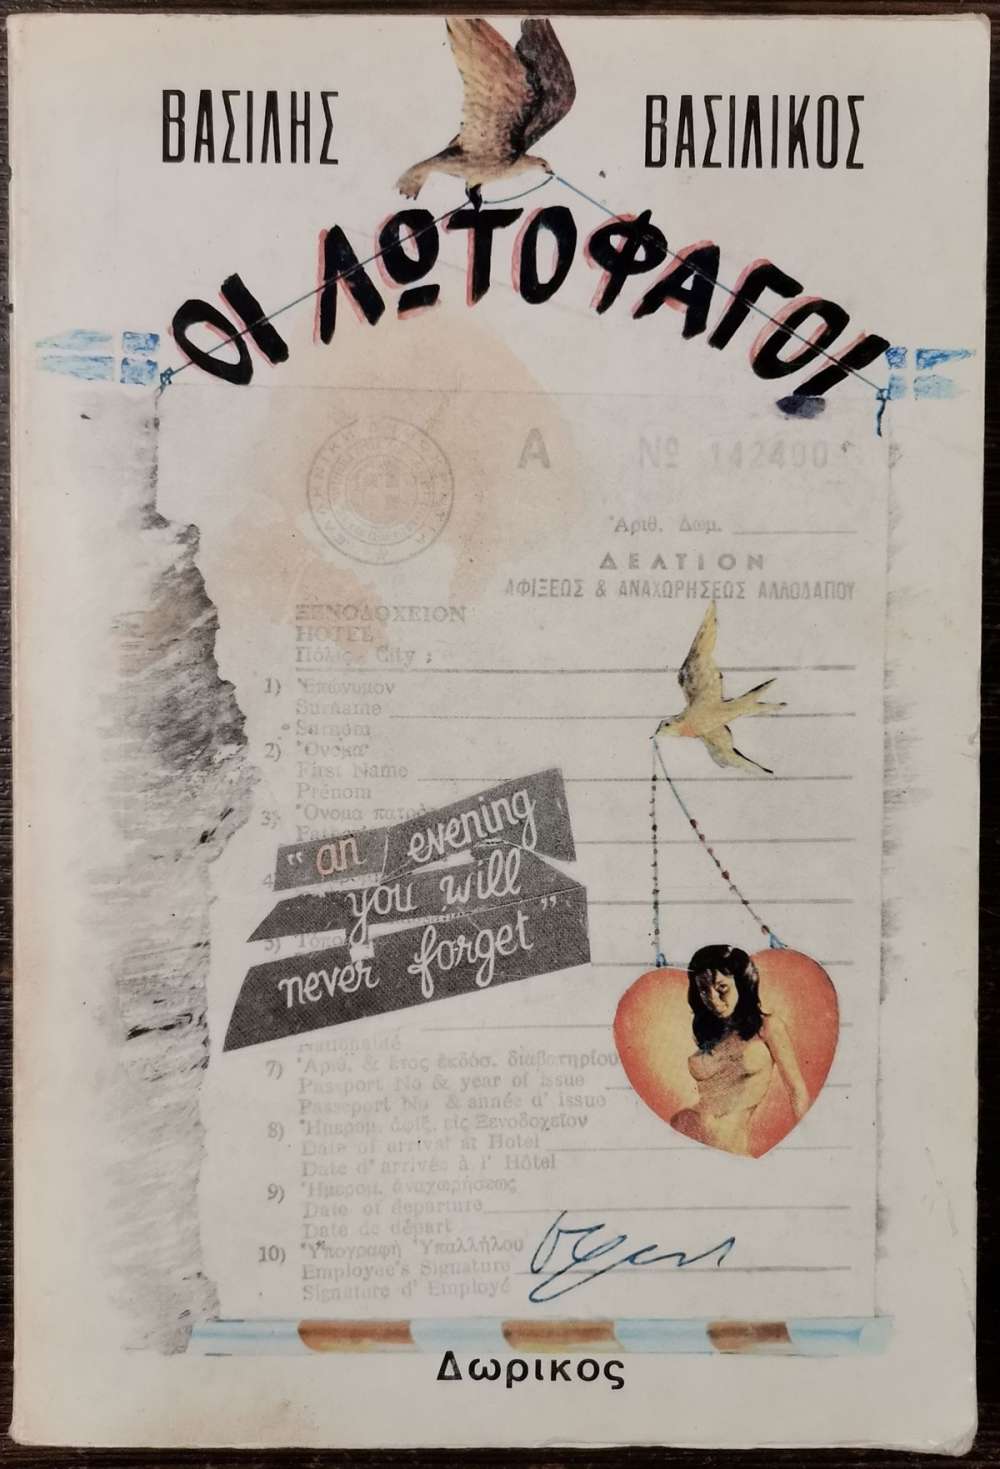 ΒΑΣΙΛΗΣ ΒΑΣΙΛΙΚΟΣ
ΟΙ ΛΩΤΟΦΑΓΟΙ
Α Νº 142400
Ἀριθ. Δωμ.
ΔΕΛΤΙΟΝ
ΑΦΙΞΕΩΣ & ΑΝΑΧΩΡΗΣΕΩΣ ΑΛΛΟΔΑΠΟΥ
ΞΕΝΟΔΟΧΕΙΟΝ
HOTEL
Πόλις City :
1) Ἐπώνυμον
Surname
Surnom
2) Ὄνομα
First Name
Prénom
3) Ὄνομα
"an evening
you will
never forget"
5)
Nationalité
7) Ἀριθ. & ἔτος ἐκδόσ. διαβατηρίου
Passport No & year of issue
Passeport No & année d' issue
8) Ἡμερομ. ἀφίξ. εἰς Ξενοδοχεῖον
Date of arrival at Hotel
Date d' arrivée à l' Hôtel
9) Ἡμερομ. ἀναχωρήσεως
Date of departure
Date de départ
10) Ὑπογραφὴ Ὑπαλλήλου
Employee's Signature
Signature d' Employé
Δωρικος